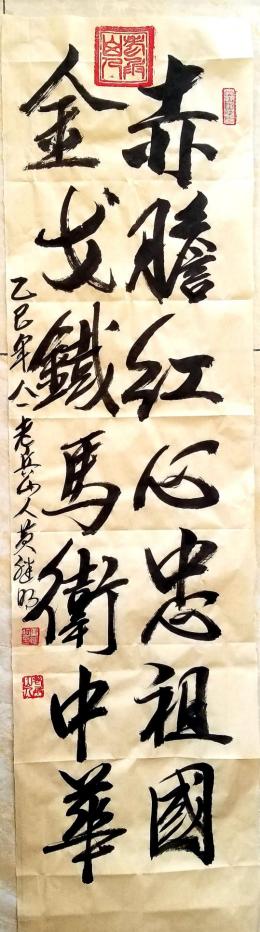 赤膽紅心忠祖國
金戈鐵馬衛中華
乙巳年八一老兵山人黄継明